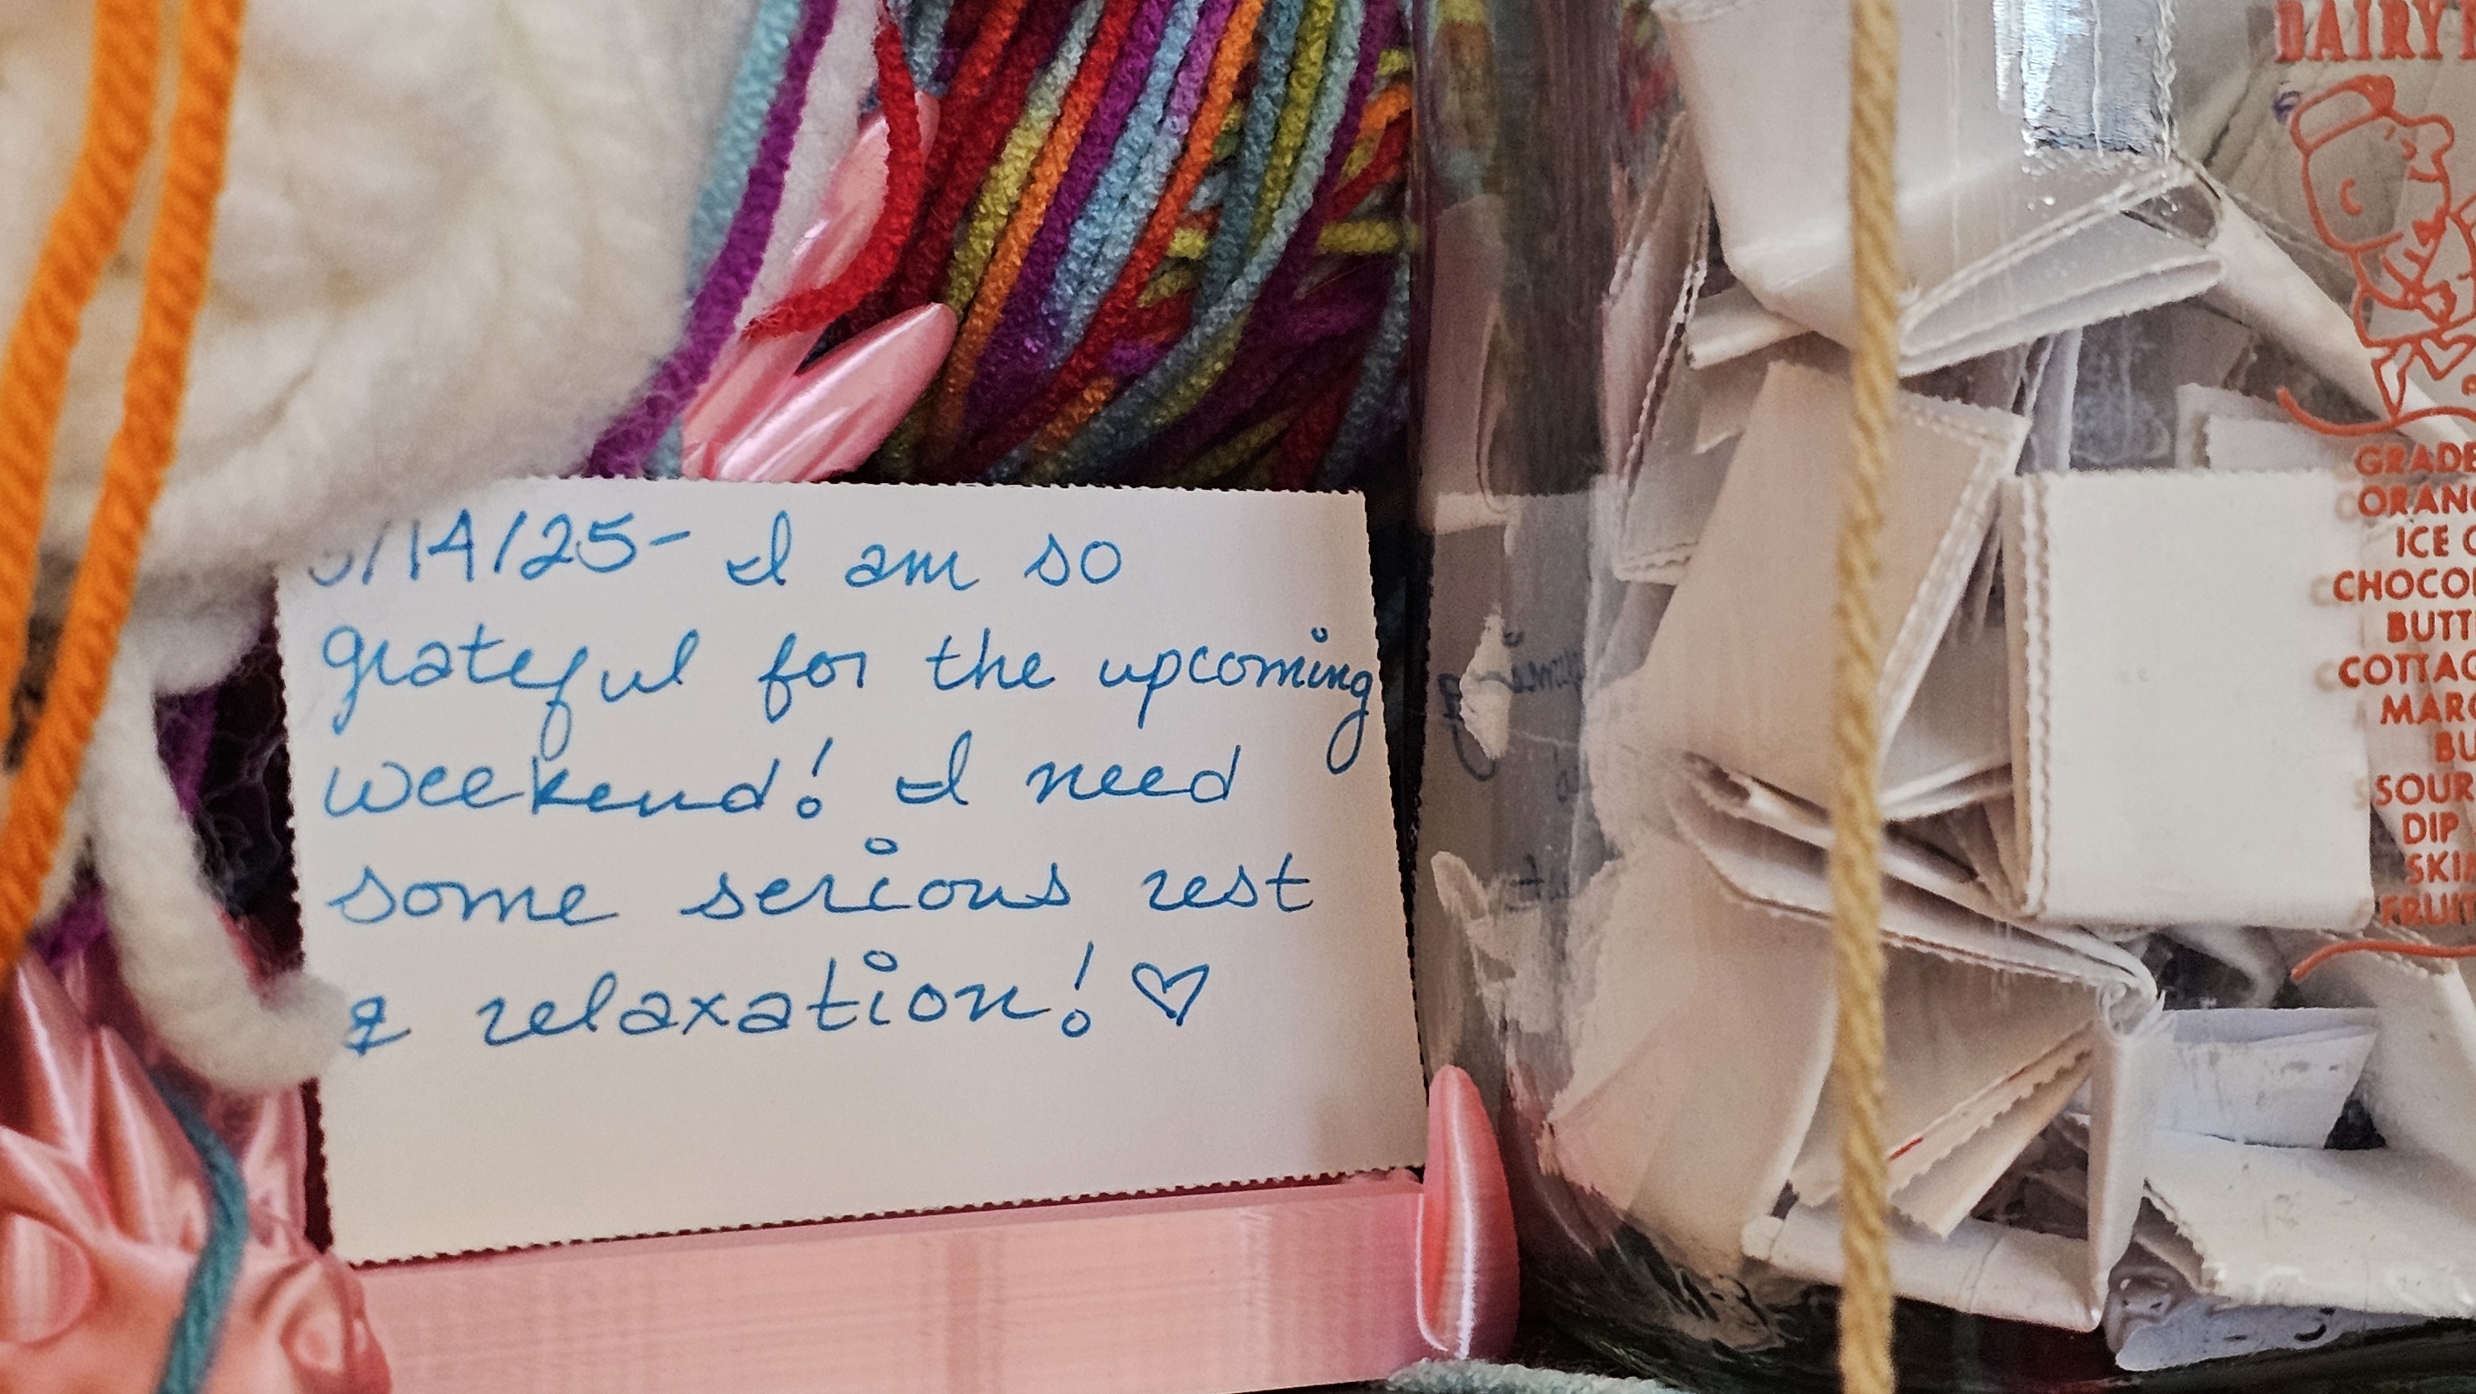 /14/25- I am so
grateful for the upcoming
weekend! I need
some serious rest
& relaxation! ♡
DAIRY
GRADE
ORANG
ICE C
CHOCOL
BUTT
COTTAG
MARG
BU
SOUR
DIP
SKIM
FRUIT